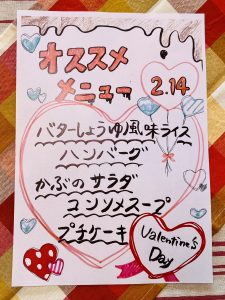 オススメ
メニュー
2.14
バターしょうゆ風味ライス
ハンバーグ
かぶのサラダ
コンソメスープ
プチケーキ
Valentine's
Day